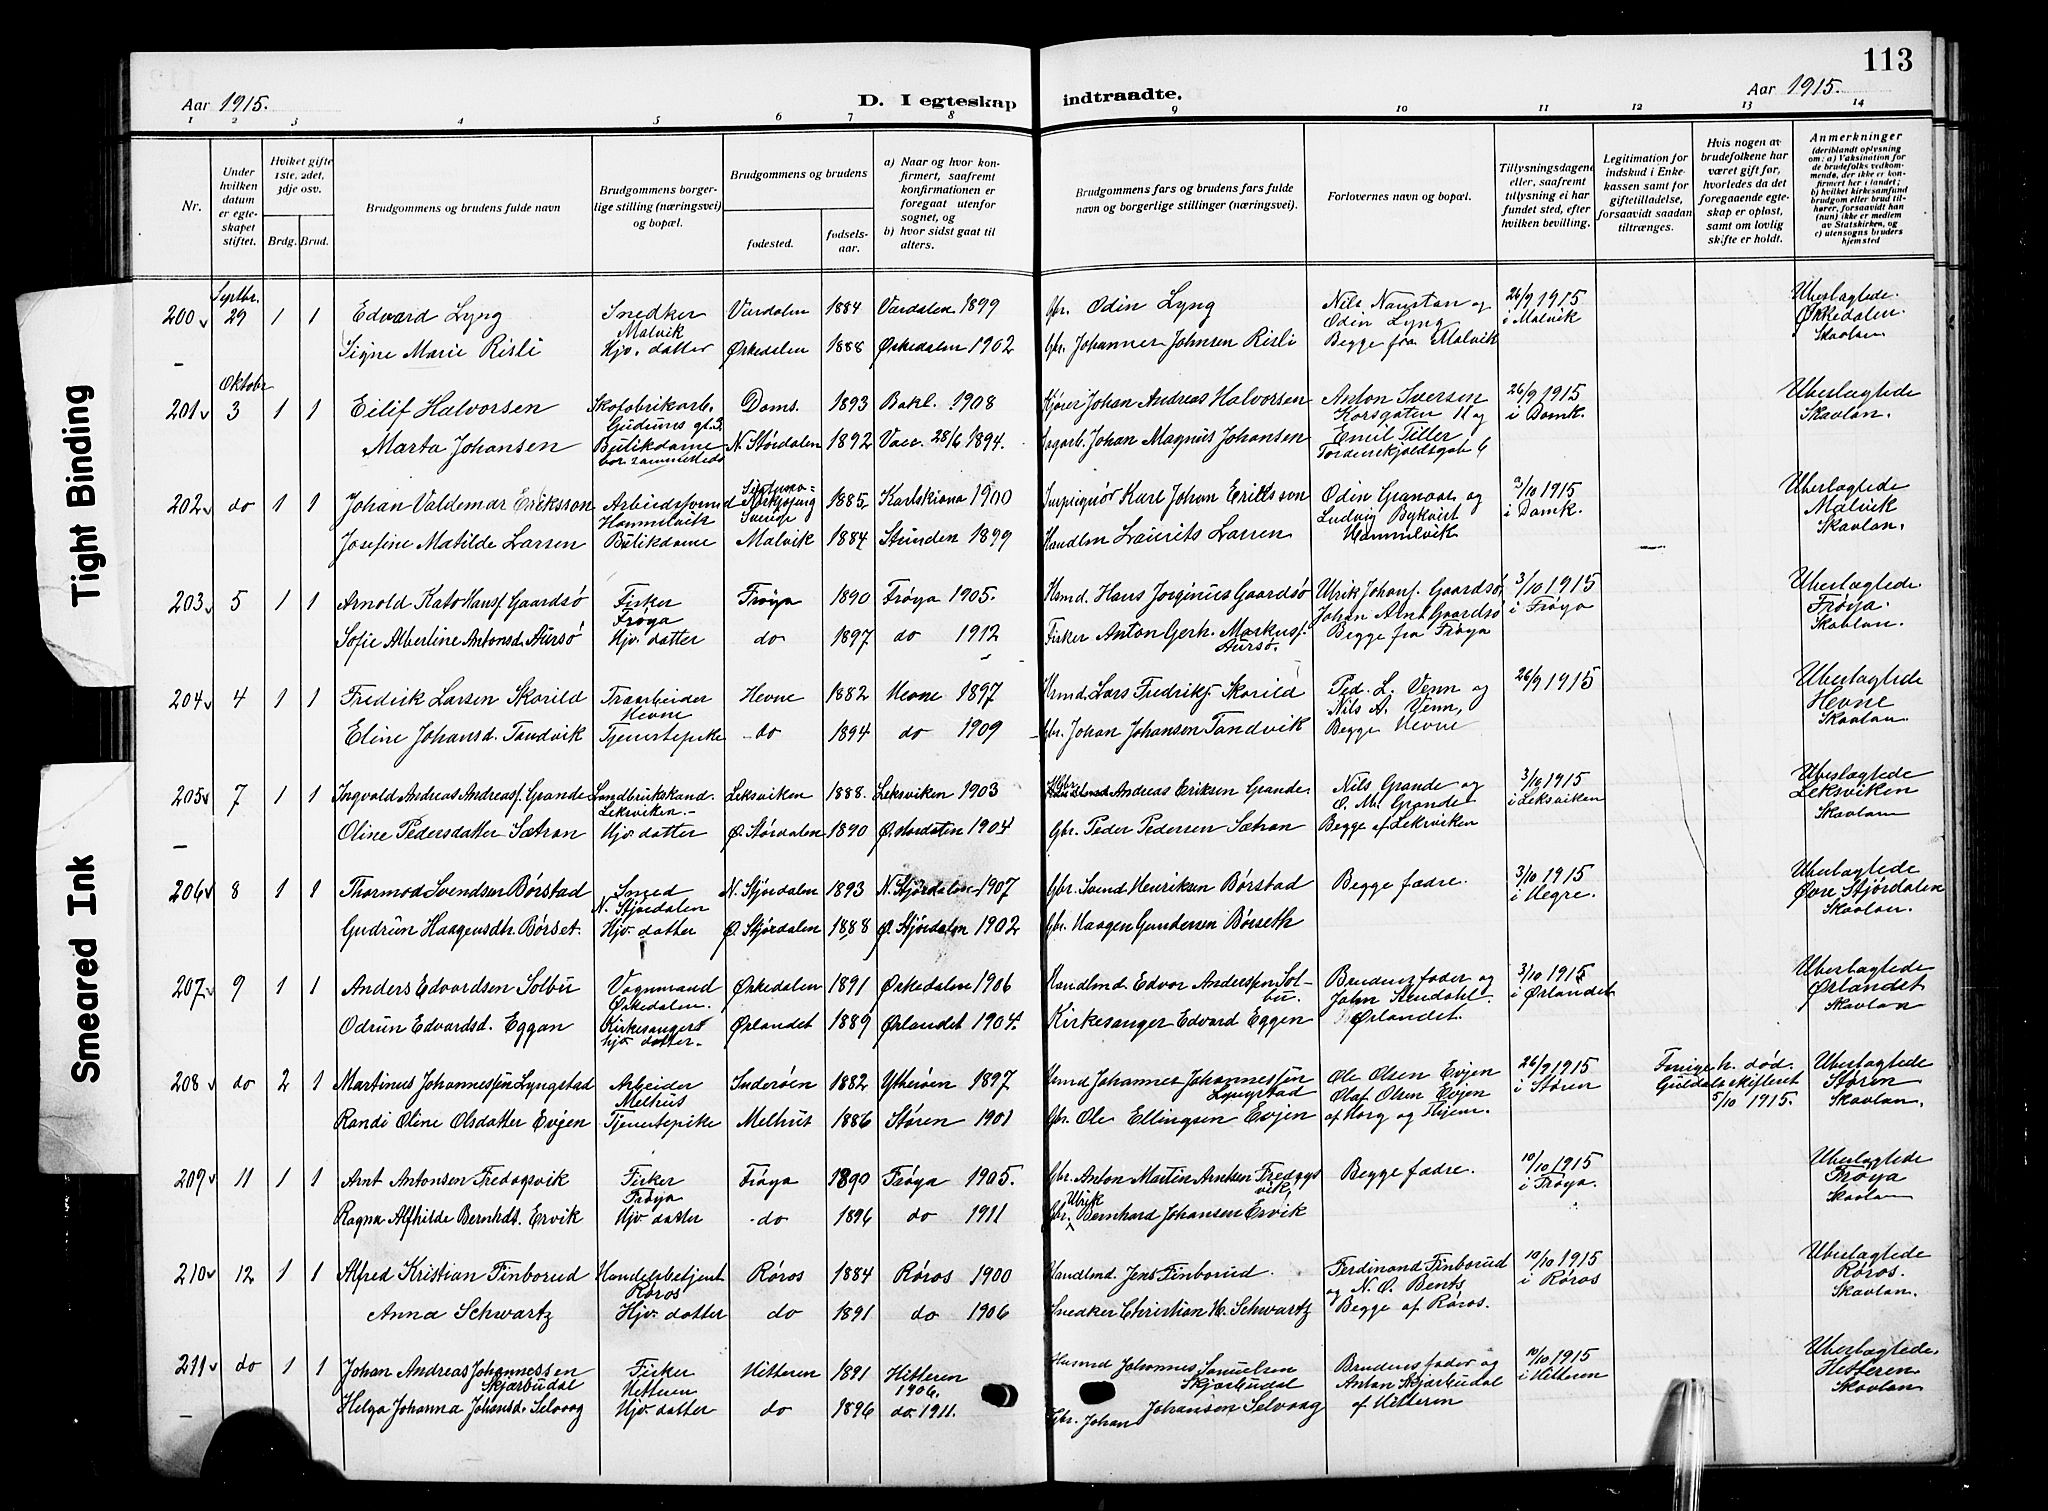 113
Aar 1915.
D. I egteskap
indtraadte.
Aar 1915.
1 2 3 4 5 6 7 8 9 10 11 12 13 14
Nr.
Under hvilken datum er egteskapet stiftet.
Hviket gifte 1ste, 2det, 3dje osv.
Brdg. Brud.
Brudgommens og brudens fulde navn
Brudgommens borgerlige stilling (næringsvei) og bopæl.
Brudgommens og brudens
fødested.
fødselsaar.
a) Naar og hvor konfirmert, saafremt konfirmationen er foregaat utenfor sognet, og b) hvor sidst gaat til alters.
Brudgommens fars og brudens fars fulde navn og borgerlige stillinger (næringsvei).
Forlovernes navn og bopæl.
Tillysningsdagene eller, saafremt tillysning ei har fundet sted, efter hvilken bevilling.
Legitimation for indskud i Enkekassen samt for giftetilladelse, forsaavidt saadan tiltrænges.
Hvis nogen av brudefolkene har været gift før, hvorledes da det foregaaende egteskap er opløst, samt om lovlig skifte er holdt.
Anmerkninger (deriblandt oplysning om: a) Vaksination for de brudefolks vedkommende, der ikke er konfirmert her i landet; b) hvilket kirkesamfund brudgom eller brud tilhører, forsaavidt han (hun) ikke er medlem av Statskirken, og c) utensogns bruders hjemsted
Septbr.
200 29 1 1 Edvard Lyng Snedker Malvik Værdalen 1884 Værdalen 1899 Gbr. Odin Lyng Nils Naustan og Odin Lyng 26/9 1915 i Malvik Ubeslægtede. Ørkedalen. Skavlan
Signe Marie Risli Hjv. datter Ørkedalen 1888 Ørkedalen 1902 Gbr. Johannes Johnsen Risli Begge fra Malvik
Oktobr
201 3 1 1 Eilif Halvorsen Skofabrikarb. Gudruns gt. 3 Doms. 1893 Bakl. 1908 Kjører Johan Andreas Halvorsen Anton Iversen Korsgaten 11 og 26/9 1915 i Domk. Ubeslægtede Skavlan.
Marta Johansen Butikdame bor sammesteds N. Størdalen 1892 Vacc. 28/6 1894. Sagarb. Johan Magnus Johansen Emil Tiller Tordenskjoldsgate 6
202 do 1 1 Johan Valdemar Eriksson Arbeidsformd Hommelvik Norkøping Sverige 1885 Karlskiona 1900 Karl Johan Eriksson Odin Granaas og Ludvig Bykvist 3/10 1915 i Domk. Ubeslægtede Malvik Skavlan.
Josefine Matilde Larsen Butikdame Malvik 1884 Strinden 1899 Handlm Laurits Larsen Hommelvik
203 5 1 1 Arnold Kato Hansf. Gaardsø Fisker Frøya Frøya 1890 Frøya 1905. Hsmd. Hans Jørginius Gaardsø Ulrik Johansf. Gaardsø, Johan Arnt Gaardsø 3/10 1915 i Frøya Ubeslægtede Frøya. Skavlan.
Sofie Albertine Antonsd. Aursø Hjv. datter do 1897 do 1912 Fisker Anton Gerh. Markusf. Aursø. Begge fra Frøya
204 4 1 1 Fredrik Larsen Skorild Træarbeider Hevne Hevne 1882 Hevne 1897 Hsmd. Lars Fredriksf. Skorild Ped. L. Venn og Nils A. Venn, 26/9 1915 Ubeslægtede Hevne Skavlan
Eline Johansd. Tandvik Tjenestepike do 1894 do 1909 Gbr. Johan Johansen Tandvik Begge Hevne
205 7 1 1 Ingvald Andreas Andreasf. Grande Landbrukskand. Leksviken. Leksviken 1888. Leksviken 1903 Gbr. Andreas Eriksen Grande. Nils Grande og O. M. Grande 3/10 1915 i Leksviken Ubeslægtede Leksviken Skavlan
Oline Pedersdatter Sætran Hjv. datter Ø. Størdalen 1890 Ø. Størdalen 1904 Gbr. Peder Pedersen Sætran Begge af Leksviken
206 8 1 1 Thormod Svendsen Børstad Smed N. Stjørdalen N. Stjørdalen 1893 N. Stjørdalen 1907 Gbr. Svend Henriksen Børstad Begge fædre. 3/10 1915 i Hegre. Ubeslægtede Øvre Stjørdalen Skavlan.
Gudrun Haagensdt. Børset. Hjv. datter Ø. Stjørdalen 1888 Ø. Stjørdalen 1902 Gbr. Haagen Gundersen Børseth
207 9 1 1 Anders Edvardsen Solbu Vognmand Orkedalen. Ørkedalen 1891 Ørkedalen 1906 Handlmd. Edvor Andersen Solbu. Brudens fader og John Stendahl. 3/10 1915 i Ørlandet Ubeslægtede Ørlandet Skavlan
Odrun Edvardsd. Eggan Kirkesangers hjv. datter. Ørlandet 1889 Ørlandet 1904. Kirkesanger Edvard Eggen Ørlandet.
208 do 2 1 Martinus Johannessen Lyngstad Arbeider Melhus Inderøen 1882 Ytterøen 1897 Hsmd Johannes Johannessen Lyngstad Ole Olsen Evjen Olaf Olsen Evjen 26/9 1915 i Støren Forrige h. død. Guldals skifteret 5/10 1915. Ubeslægtede Støren Skavlan.
Randi Oline Olsdatter Evjen Tjenestepike Melhus 1886 Støren 1901 Gbr. Ole Ellingsen Evjen af Horg og Flijem.
209 11 1 1 Arnt Antonsen Fredagsvik Fisker Frøya Frøya 1890 Frøya 1905. Gbr. Anton Martin Arntsen Fredagsvik, Begge fædre. 10/10 1915 i Frøya. Ubeslægtede Frøya Skavlan
Ragna Alfhilde Bernhdt. Ervik Hjv. datter do 1896 do 1911 Gbr. Ulrik Bernhard Johansen Ervik
210 12 1 1 Alfred Kristian Finborud Handelsbetjent Røros Røros 1884 Røros 1900 Handlmd. Jens Finborud. Ferdinand Finborud og N. O. Bents 10/10 1915 i Røros Ubeslægtede Røros. Skavlan.
Anna Schwartz Hjv. datter do 1891 do 1906 Snedker Christian H. Schwartz Begge af Røros.
211 do 1 1 Johan Andreas Johannessen Skjærbudal Fisker Hitteren Hitteren 1891 Hitteren 1906. Husmd Johannes Samuelsen Skjærbudal Brudens fader og Anton Skjærbudal 10/10 1915 i Hitteren Ubeslægtede. Hitteren Skavlan
Helga Johanna Johansd. Selvaag Hjv. datter do 1896 do 1911. Gbr. Johan Johansen Selvaag af Hitteren
Tight Binding
Smeared Ink